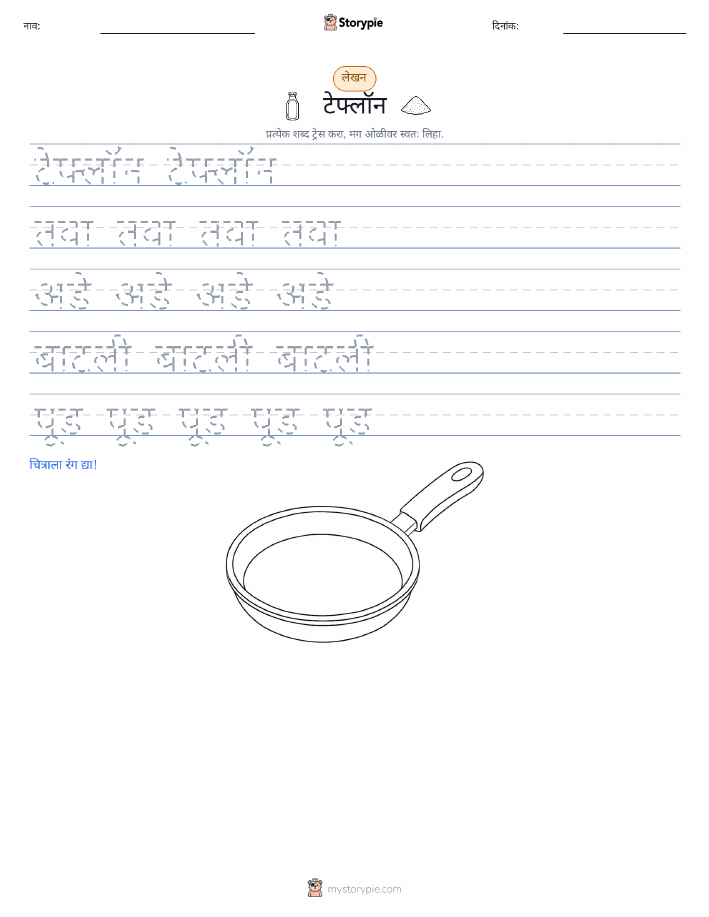 नाव:
Storypie
दिनांक:
लेखन
टेफ्लॉन
प्रत्येक शब्द ट्रेस करा, मग ओळीवर स्वतः लिहा.
टेफ्लॉन टेफ्लॉन
तवा तवा तवा तवा
अंडे अंडे अंडे अंडे
बाटली बाटली बाटली
पूड पूड पूड पूड पूड
चित्राला रंग द्या!
mystorypie.com